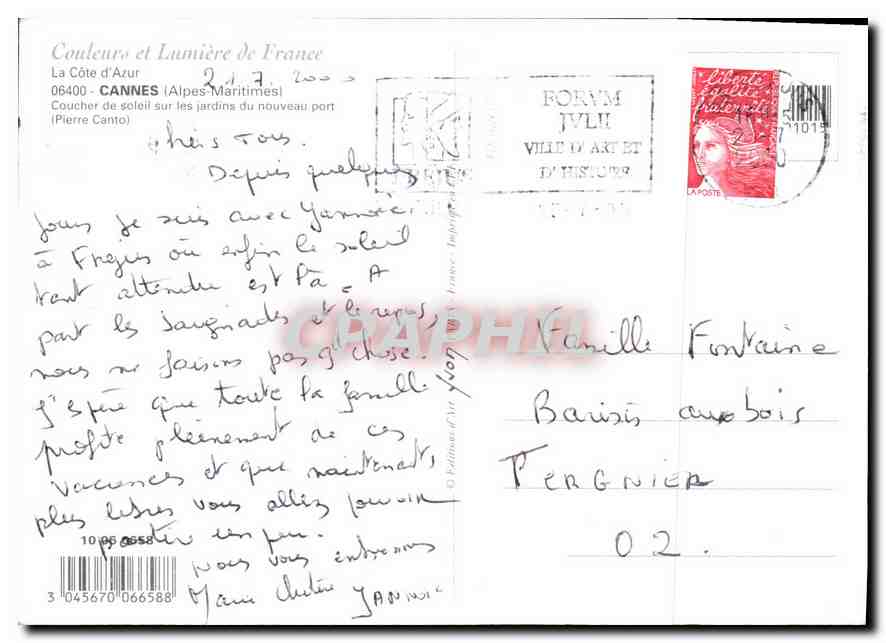 Couleurs et Lumière de France
La Côte d'Azur
06400 - CANNES (Alpes-Maritimes)
Coucher de soleil sur les jardins du nouveau port
(Pierre Canto)
21.7.2000
Chers Tous.
Depuis quelques
jours je suis avec Yannic
à Fréjus où enfin le soleil
tant attendu est là. A
part les baignades et le repos,
nous ne faisons pas gd chose.
J'espère que toute la famille
profite pleinement de ces
vacances et que maintenant,
plus libres vous allez pouvoir
partir un peu.
Nous vous embrassons
Marie Yannic
10 06 6658
3 045670 066588
© Editions d'Art Yvon
FORVM
JVLII
VILLE D'ART ET
D'HISTOIRE
liberté
égalité
fraternité
LA POSTE
CPAPHIL
Famille Fontaine
Barisis aux bois
TERGNIER
02.